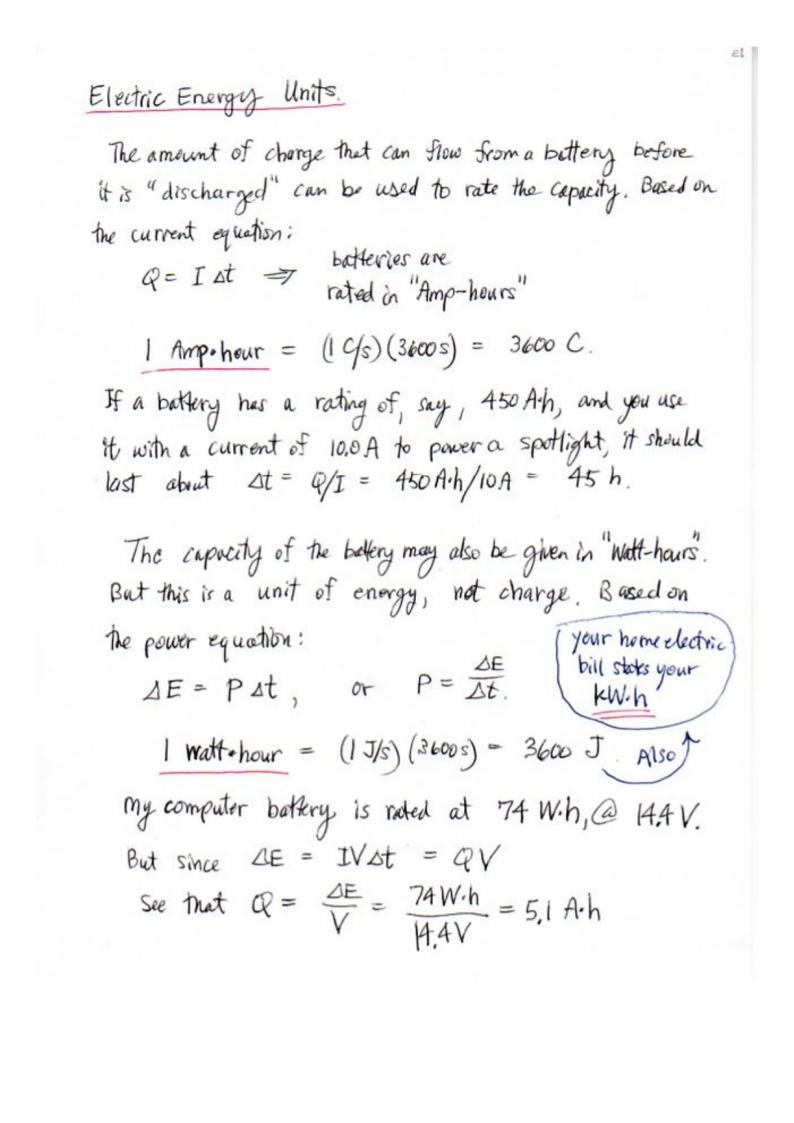 21
Electric Energy Units.
The amount of charge that can flow from a battery before
it is "discharged" can be used to rate the capacity. Based on
the current equation:
Q = I Δt ⇒ batteries are
rated in "Amp-hours"
1 Amp•hour = (1 C/s)(3600s) = 3600 C.
If a battery has a rating of, say, 450 A·h, and you use
it with a current of 10.0 A to power a spotlight, it should
last about Δt = Q/I = 450 A·h/10A = 45 h.
The capacity of the battery may also be given in "Watt-hours".
But this is a unit of energy, not charge. Based on
the power equation:
ΔE = P Δt, or P = ΔE/Δt.
your home electric
bill states your
kW·h
1 Watt•hour = (1 J/s)(3600s) = 3600 J. Also
My computer battery is rated at 74 W·h, @ 14.4 V.
But since ΔE = IVΔt = QV
See that Q = ΔE/V = 74 W·h/14.4V = 5.1 A·h